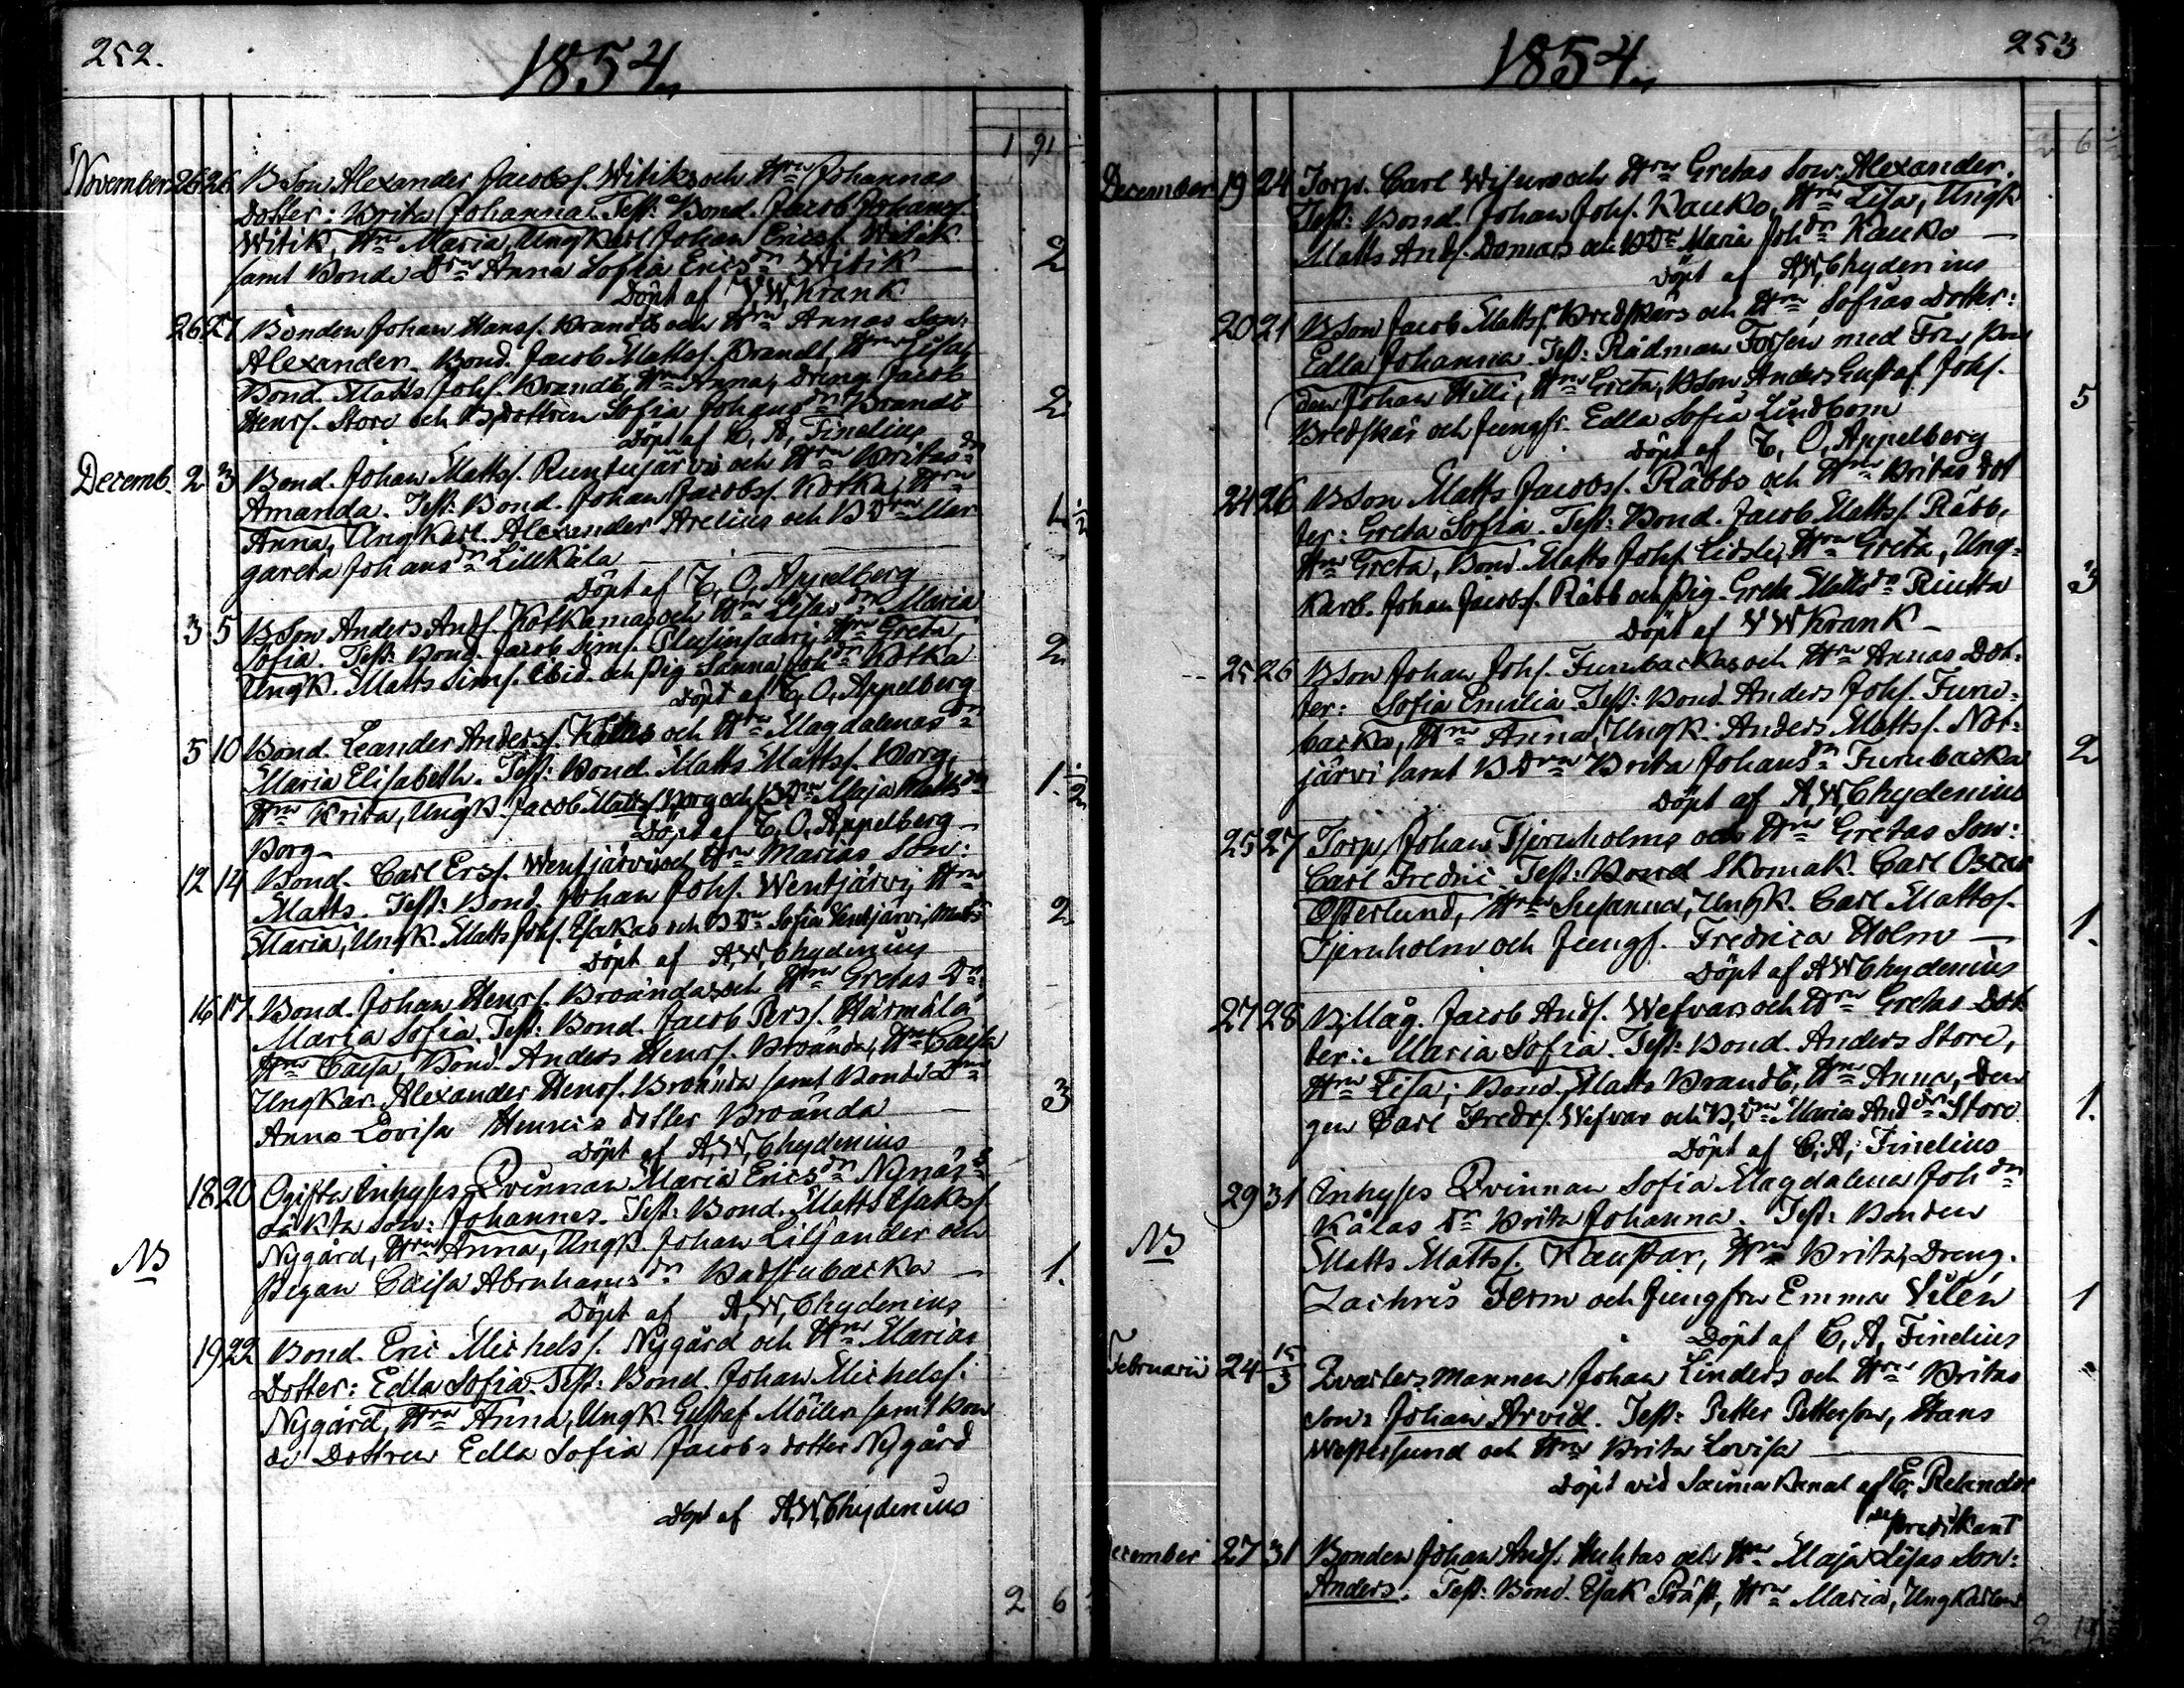 252.
1854.
1 91
November 26 26 BSon Alexander Jacobs. Witiks och Hru Johannas
Dotter: Brita Johanna. Test: Bond. Jacob Johans.
Witik, Hru Maria, Ungkarl Johan Ericss. Witik
samt Bonde Dru Anna Sofia Ericsdr Witik — 2
Döpt af V, W, Krank
26 27 Bonden Johan Hanss. Brandts och Hru Annas Son:
Alexander. Bond. Jacob Matts. Brandt, Hru Lisa,
Bond. Matts Johs. Brandt, Hru Anna, Dreng Jacob
Henrs. Store och B.dottren Sofia Johansdr Brandt 2
Döpt af C, A, Finelius
Decemb. 2 3 Bond. Johan Mattss. Runtujärvis och Hru Britas Dr
Amanda. Test: Bond. Johan Jacobss. Kotka, Hru
Anna, Ungkarl. Alexander Arelius och B Dru Mar 1 1/2
gareta Johansdr Lillkåla
Döpt af C, O, Appelberg
3 5 BSon Anders Ands. Kotkamas och Hru Lisas Dr Maria
Sofia. Test: Bond. Jacob Sims. Hru Greta, 2
Ungk. Matts Sims. ibid. och Pig Sanna Johdr Kotka
Döpt af C, O, Appelberg
5 10 Bond. Leander Anderss. Kålas och Hru Magdalenas Dr
Maria Elisabeth. Test: Bond. Matts Mattss. Borg,
Hru Brita, Ungk. Jacob Mattss. Borg och B Dru Maja Mattsdr 1. 1/2
Borg —
Döpt af C, O, Appelberg —
12 14 Bond. Carl Ers. Wentjärvis och Hru Marias Son:
Matts. Test: Bond. Johan Johs. Wentjärvi, Hru
Maria, Ungk. Matts Johs. Esakas och B Dru Sofia Wentjärvi, 2
Döpt af A, W, Chydenius
16 17. Bond. Johan Henrs. Broändas och Hru Gretas Dr:
Maria Sofia. Test: Bond. Jacob Pers. Härmälä
Hru Caisa, Bond. Anders Henrs. Broända, Hru Caisa
Ungkar. Alexander Henrs. Broända samt Bonde Dru
Anna Lovisa Henrics dotter Broända — 3
Döpt af A, W, Chydenius
18 20 Ogifta Inhyses Qvinnan Maria Ericsdr Nynäs
oäkta Son: Johannes. Test: Bond. Matts Esakss.
NB Nygård, Hru Anna, Ungk. Johan Liljander och
Pigan Caisa Abrahamsdr Badstubacka — 1.
Döpt af A, W, Chydenius
19 22 Bond. Eric Michelss. Nygård och Hru Marias
Dotter: Edla Sofia. Test: Bond. Johan Michelss.
Nygård, Hru Anna, Ungk. Gustaf Möller samt Bon
de Dottren Edla Sofia Jacobs dotter Nygård
Döpt af A, W, Chydenius
2 6
1854.
253
6
December 19 24 Torp. Carl Wisurs och Hru Gretas Son: Alexander.
Test: Bond. Johan Johs. Kauko, Hru Lisa, Ungk
Matts Ands. Domars och B Dr Maria Johdr Kauko —
Döpt af A, W, Chydenius
20 21 BSon Jacob Mattss. Bredskärs och Hru Sofias Dotter:
Edla Johanna. Test: Rådman Forsén med Fru, Bon
den Johan Hilli, Hru Greta, BSon Anders Gustaf Johs. 5
Bredskär och Jungfr. Edla Sofia Lindbom
Döpt af C, O, Appelberg
24 26 BSon Matts Jacobss. Räbbs och Hru Britas Dot
ter: Greta Sofia. Test: Bond. Jacob Mattss. Räbb,
Hru Greta, Bond. Matts Johs. Lidsle, Hru Greta, Ung-
Karb. Johan Jacobs. Räbb och Pig. Greta Mattsdr Riutta 3
Döpt af V W Krank —
25 26 BSon Johan Johs. Furubackas och Hru Annas Dot-
ter: Sofia Emilia. Test: Bond. Anders Johs. Furu-
backa, Hru Anna, Ungk. Anders Mattss. Not-
järvi samt B Dru Brita Johansdr Furubacka 2
Döpt af A, W, Chydenius
25 27 Torp. Johan Tjernholms och Hru Gretas Son:
Carl Fredric. Test: Bond Skomak. Carl Oscar
Österlund, Hru Susanna, Ungk. Carl Mattss.
Tjernholm och Jungf. Fredrica Holm — 1.
Döpt af A W Chydenius
27 28 B, Måg. Jacob Ands. Wefvars och Hru Gretas Dot
ter: Maria Sofia. Test: Bond. Anders Store,
Hru Lisa; Bond. Matts Brandt, Hru Anna, Dren
gen Carl Fredrs. Wefvar och B, Dru Maria Anddr Store 1.
Döpt af C, A, Finelius
29 31 Inhyses Qvinnan Sofia Magdalena Johdr
Kålas Dr Brita Johanna. Test: Bonden
NB Matts Mattss. Kaustar, Hru Brita, Dreng.
Zachris Term och Jungfru Emma Vilén 1
Döpt af C, A, Finelius
Februarii 24 15/3 Qvartersmannen Johan Linders och Hru Britas
Son: Johan Arvid. Test: Petter Petterson, Hans
Westersund och Hru Brita Lovisa —
Döpt vid Saima Kanal af E, Relander
predikant
December 27 31 Bonden Johan Ands. Huhtas och Hru Maja Lisas Son:
Anders. Test: Bond. Esak Präst, Hru Maria, Ungkarlen
2